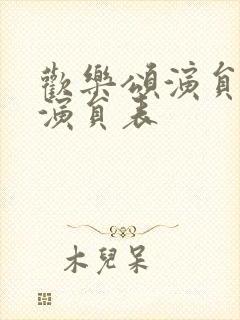 歡樂頌演員
演員表
木兒呆